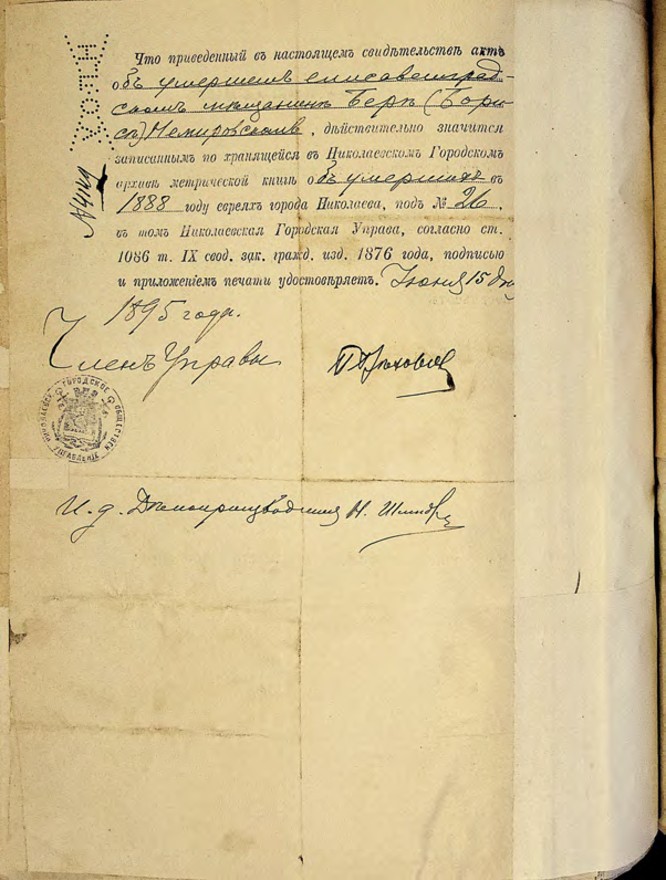 Что приведенный въ настоящемъ свидѣтельствѣ актъ
объ умершемъ елисаветград-
скомъ мѣщанинѣ Беркѣ (Бори-
сѣ) Немировскомъ, дѣйствительно значится
записаннымъ по хранящейся въ Николаевскомъ Городскомъ
архивѣ метрической книгѣ объ умершихъ въ
1888 году евреяхъ города Николаева, подъ № 26,
въ томъ Николаевская Городская Управа, согласно ст.
1086 т. IX свод. зак. гражд. изд. 1876 года, подписью
и приложеніемъ печати удостовѣряетъ. Іюня 15 дня
1895 года.
Членъ Управы
НИКОЛАЕВСК. ГОРОДСКОЕ ОБЩЕСТВЕН. УПРАВЛЕНІЕ
И. д. Дѣлопроизводителя Н.